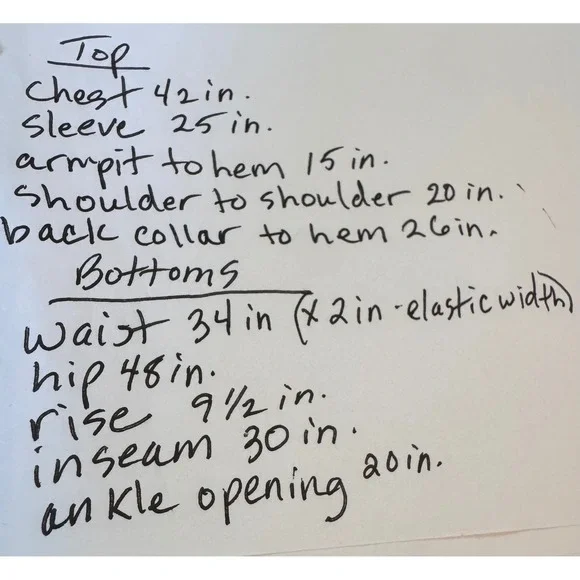 Top
chest 42 in.
sleeve 25 in.
armpit to hem 15 in.
shoulder to shoulder 20 in.
back collar to hem 26 in.
Bottoms
waist 34 in (x 2 in - elastic width)
hip 48 in.
rise 9 1/2 in.
inseam 30 in.
ankle opening 20 in.